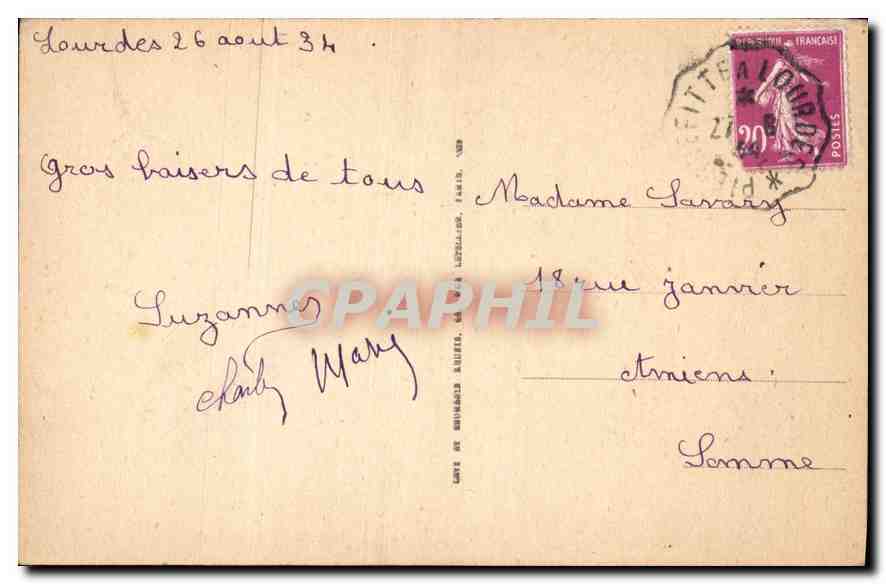 Lourdes 26 aout 34
gros baisers de tous
Suzanne
Charly Mary
Madame Savary
18 rue janvier
Amiens
Somme
FRANÇAISE
20
POSTES
A LOURDES
27
CPAPHIL